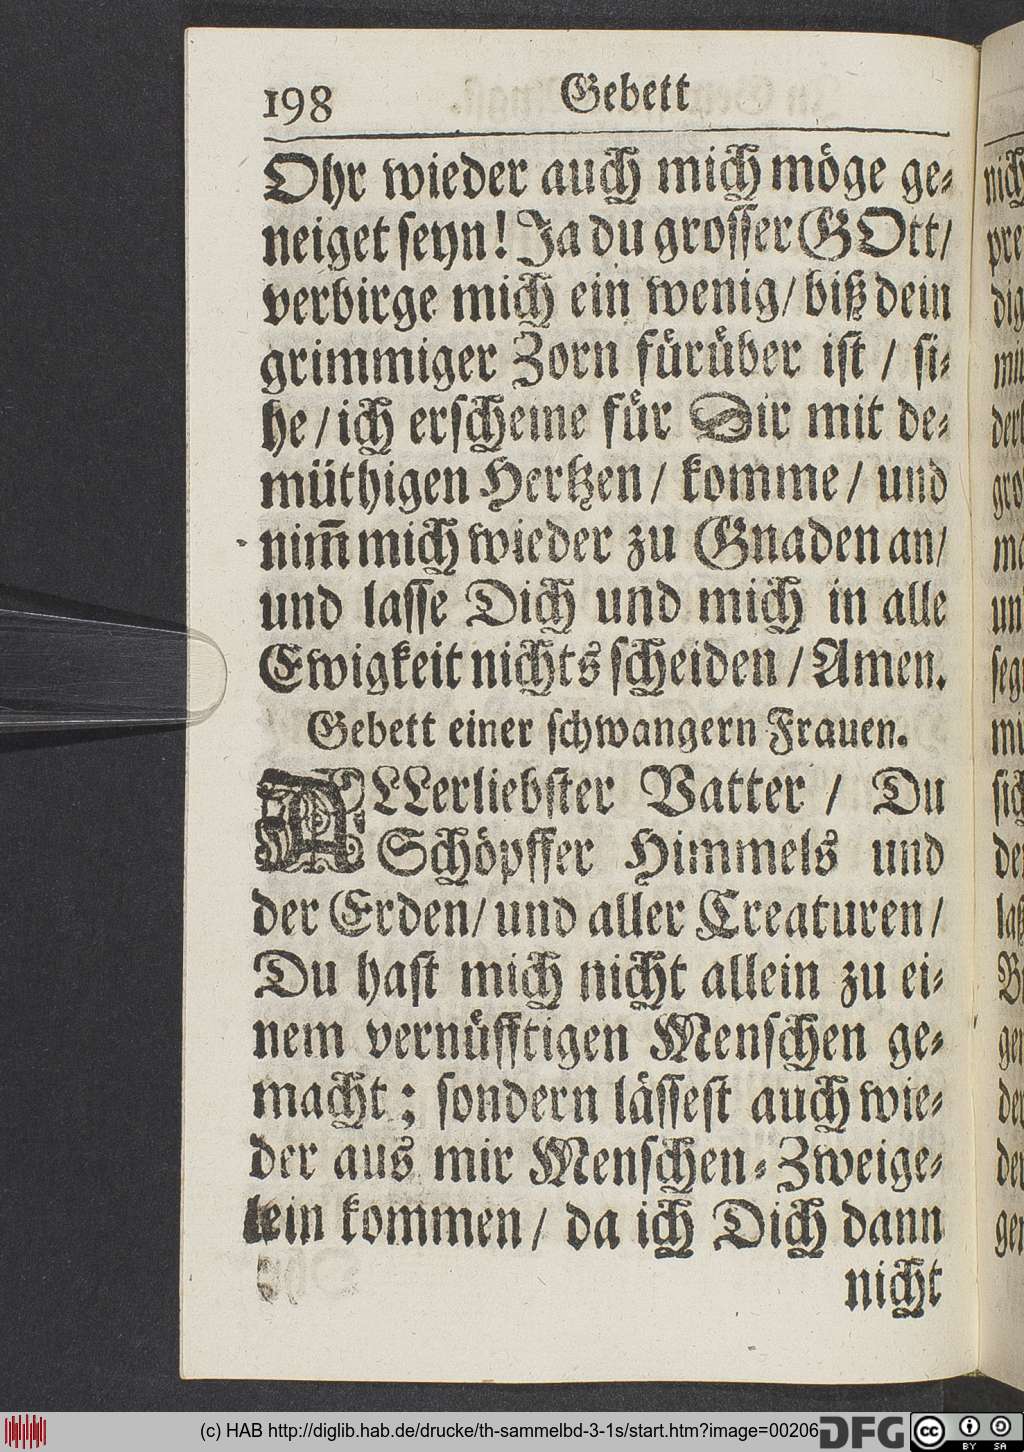 198 Gebett
Ohr wieder auch mich möge ge-
neiget seyn! Ja du grosser GOtt/
verbirge mich ein wenig/ biß dein
grimmiger Zorn fürüber ist / si-
he / ich erscheine für Dir mit de-
müthigen Hertzen / komme / und
nim̅ mich wieder zu Gnaden an/
und lasse Dich und mich in alle
Ewigkeit nichts scheiden / Amen.
Gebett einer schwangern Frauen.
ALLerliebster Vatter / Du
Schöpffer Himmels und
der Erden/ und aller Creaturen /
Du hast mich nicht allein zu ei-
nem vernüfftigen Menschen ge-
macht; sondern lässest auch wie-
der aus mir Menschen-Zweige-
lein kommen / da ich Dich dann
nicht
(c) HAB http://diglib.hab.de/drucke/th-sammelbd-3-1s/start.htm?image=00206
DFG
cc BY SA